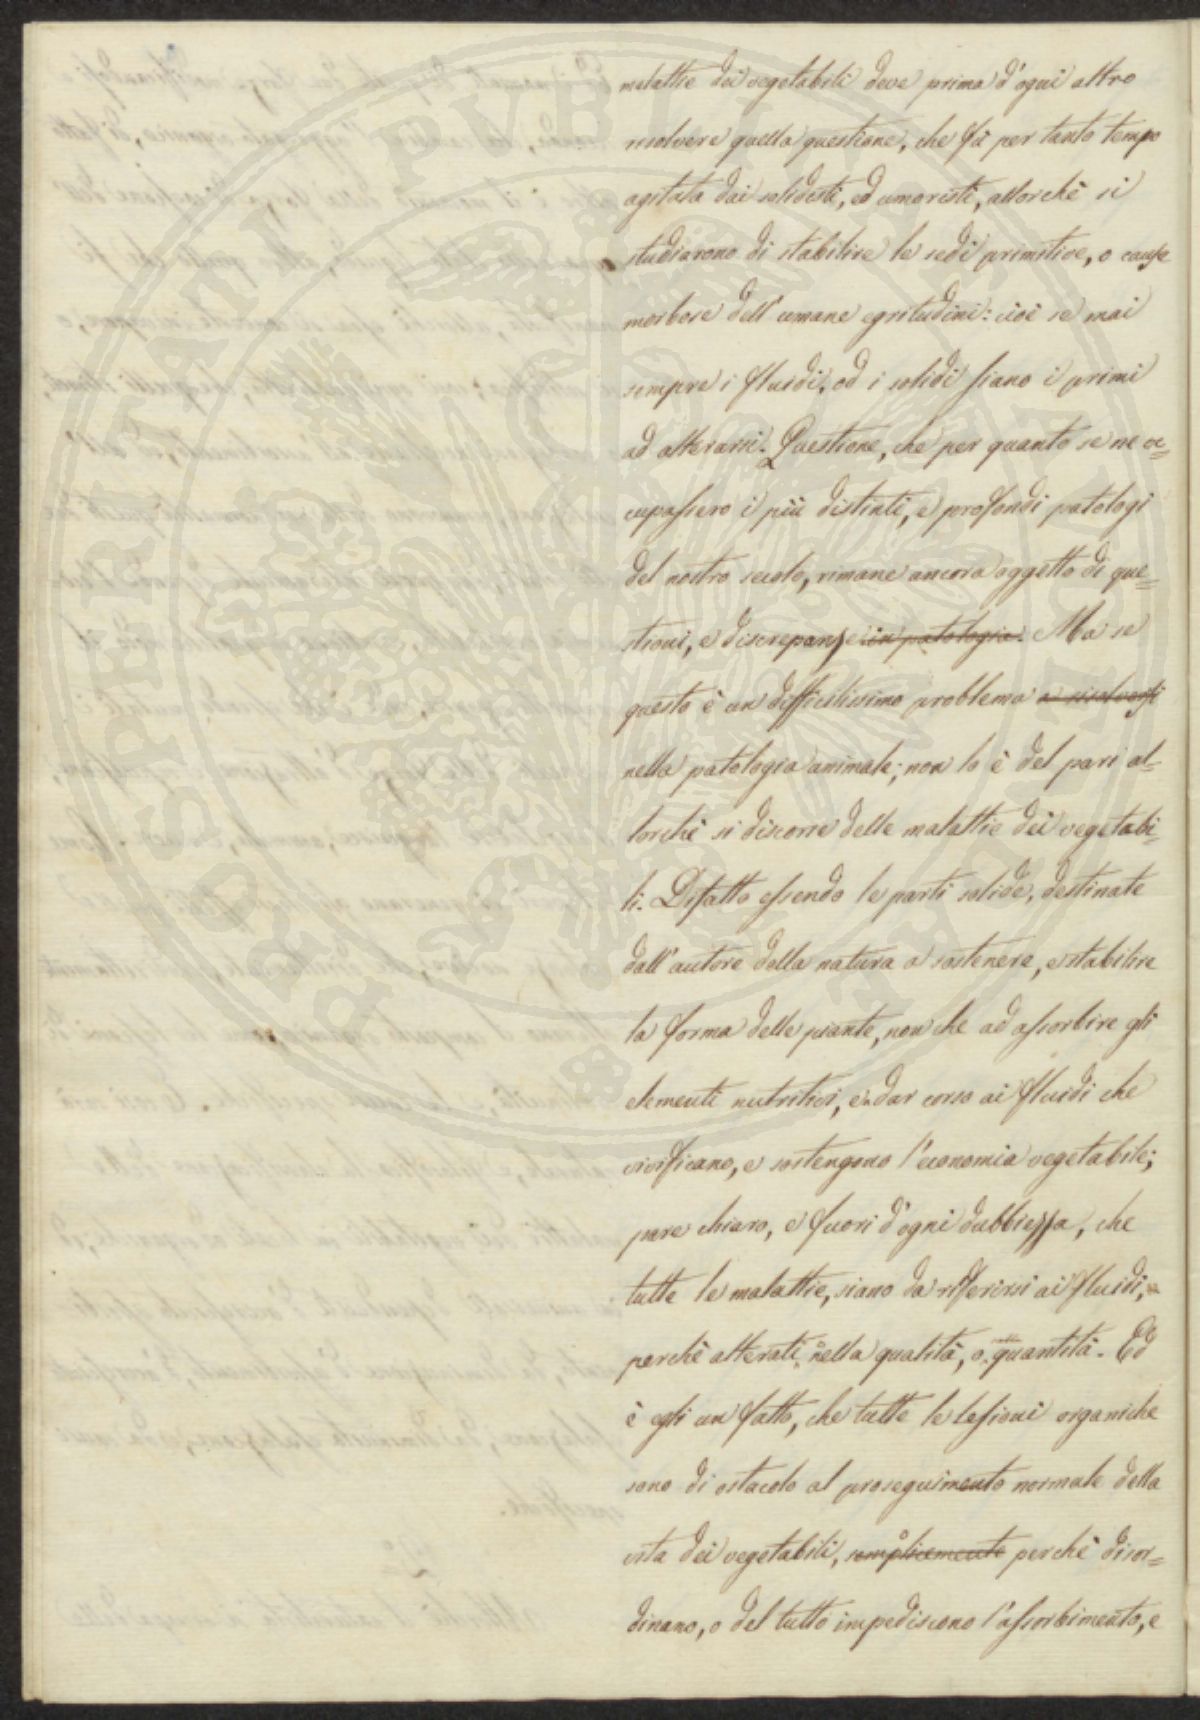 malattie dei vegetabili deve prima d'ogni altro
risolvere quella questione, che fù per tanto tempo
agitata dai solidisti, ed umoristi, allorchè si
studiarono di stabilire le sedi primitive, o cause
morbose dell'umane egritudini: cioè se mai
sempre i fluidi, od i solidi siano i primi
ad alterarsi. Questione, che per quanto se ne oc=
cupassero i più distinti, e profondi patologi
del nostro secolo, rimane ancora oggetto di que=
stioni, e discrepanze in patologia. Ma se
questo è un difficilissimo problema a risolversi
nella patologia animale; non lo è del pari al=
lorchè si discorre delle malattie dei vegetabi=
li. Difatto essendo le parti solide, destinate
dall'autore della natura a sostenere, e stabilire
la forma delle piante, non che ad assorbire gli
elementi nutritivi, e dar corso ai fluidi che
vivificano, e sostengono l'economia vegetabile;
pare chiaro, e fuori d'ogni dubbiezza, che
tutte le malattie, siano da riferirsi ai fluidi,
perchè alterati, o nella qualità, o quantità. Ed
è egli un fatto, che tutte le lesioni organiche
sono di ostacolo al proseguimento normale della
vita dei vegetabili, semplicemente perchè disor=
dinano, o del tutto impediscono l'assorbimento, e
PROSPERITATI PVBLICAE